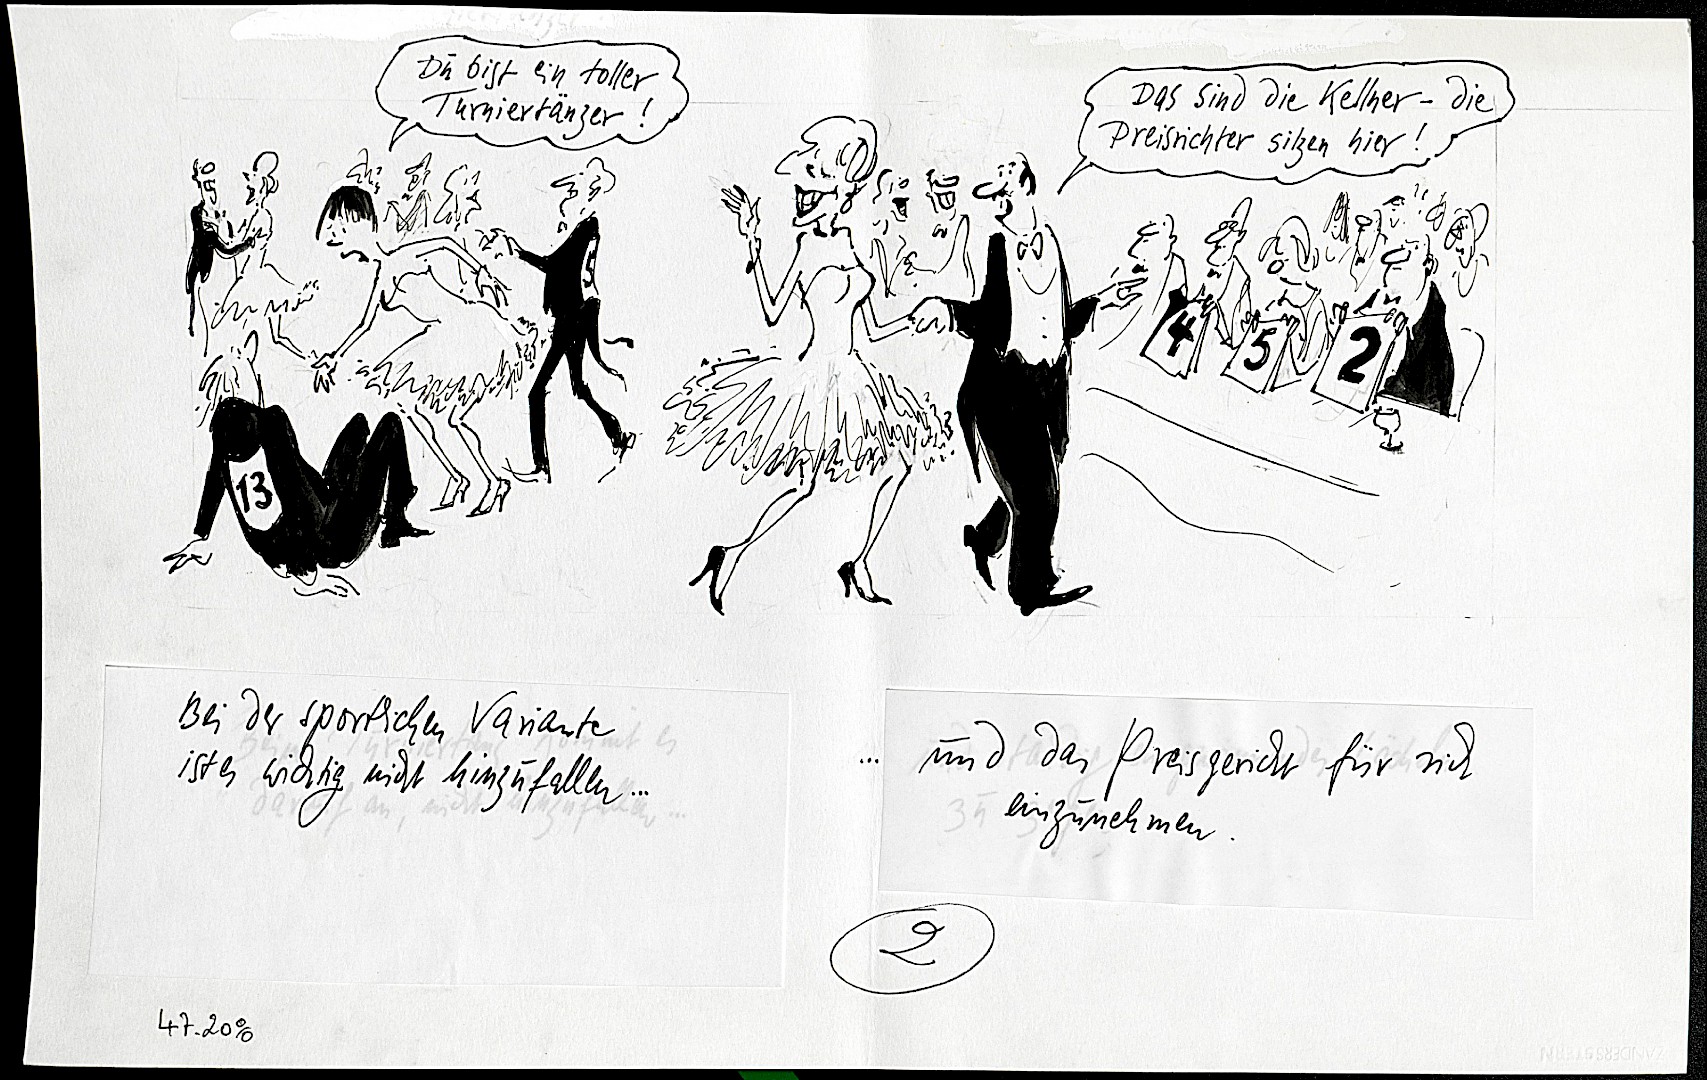 Du bist ein toller
Turniertänzer !
Das sind die Kellner - die
Preisrichter sitzen hier !
5
4
5
2
13
Bei der sportlichen Variante
ist es wichtig nicht hinzufallen ...
... und das Preisgericht für sich
einzunehmen .
2
47.20%
ZANDERS STERN